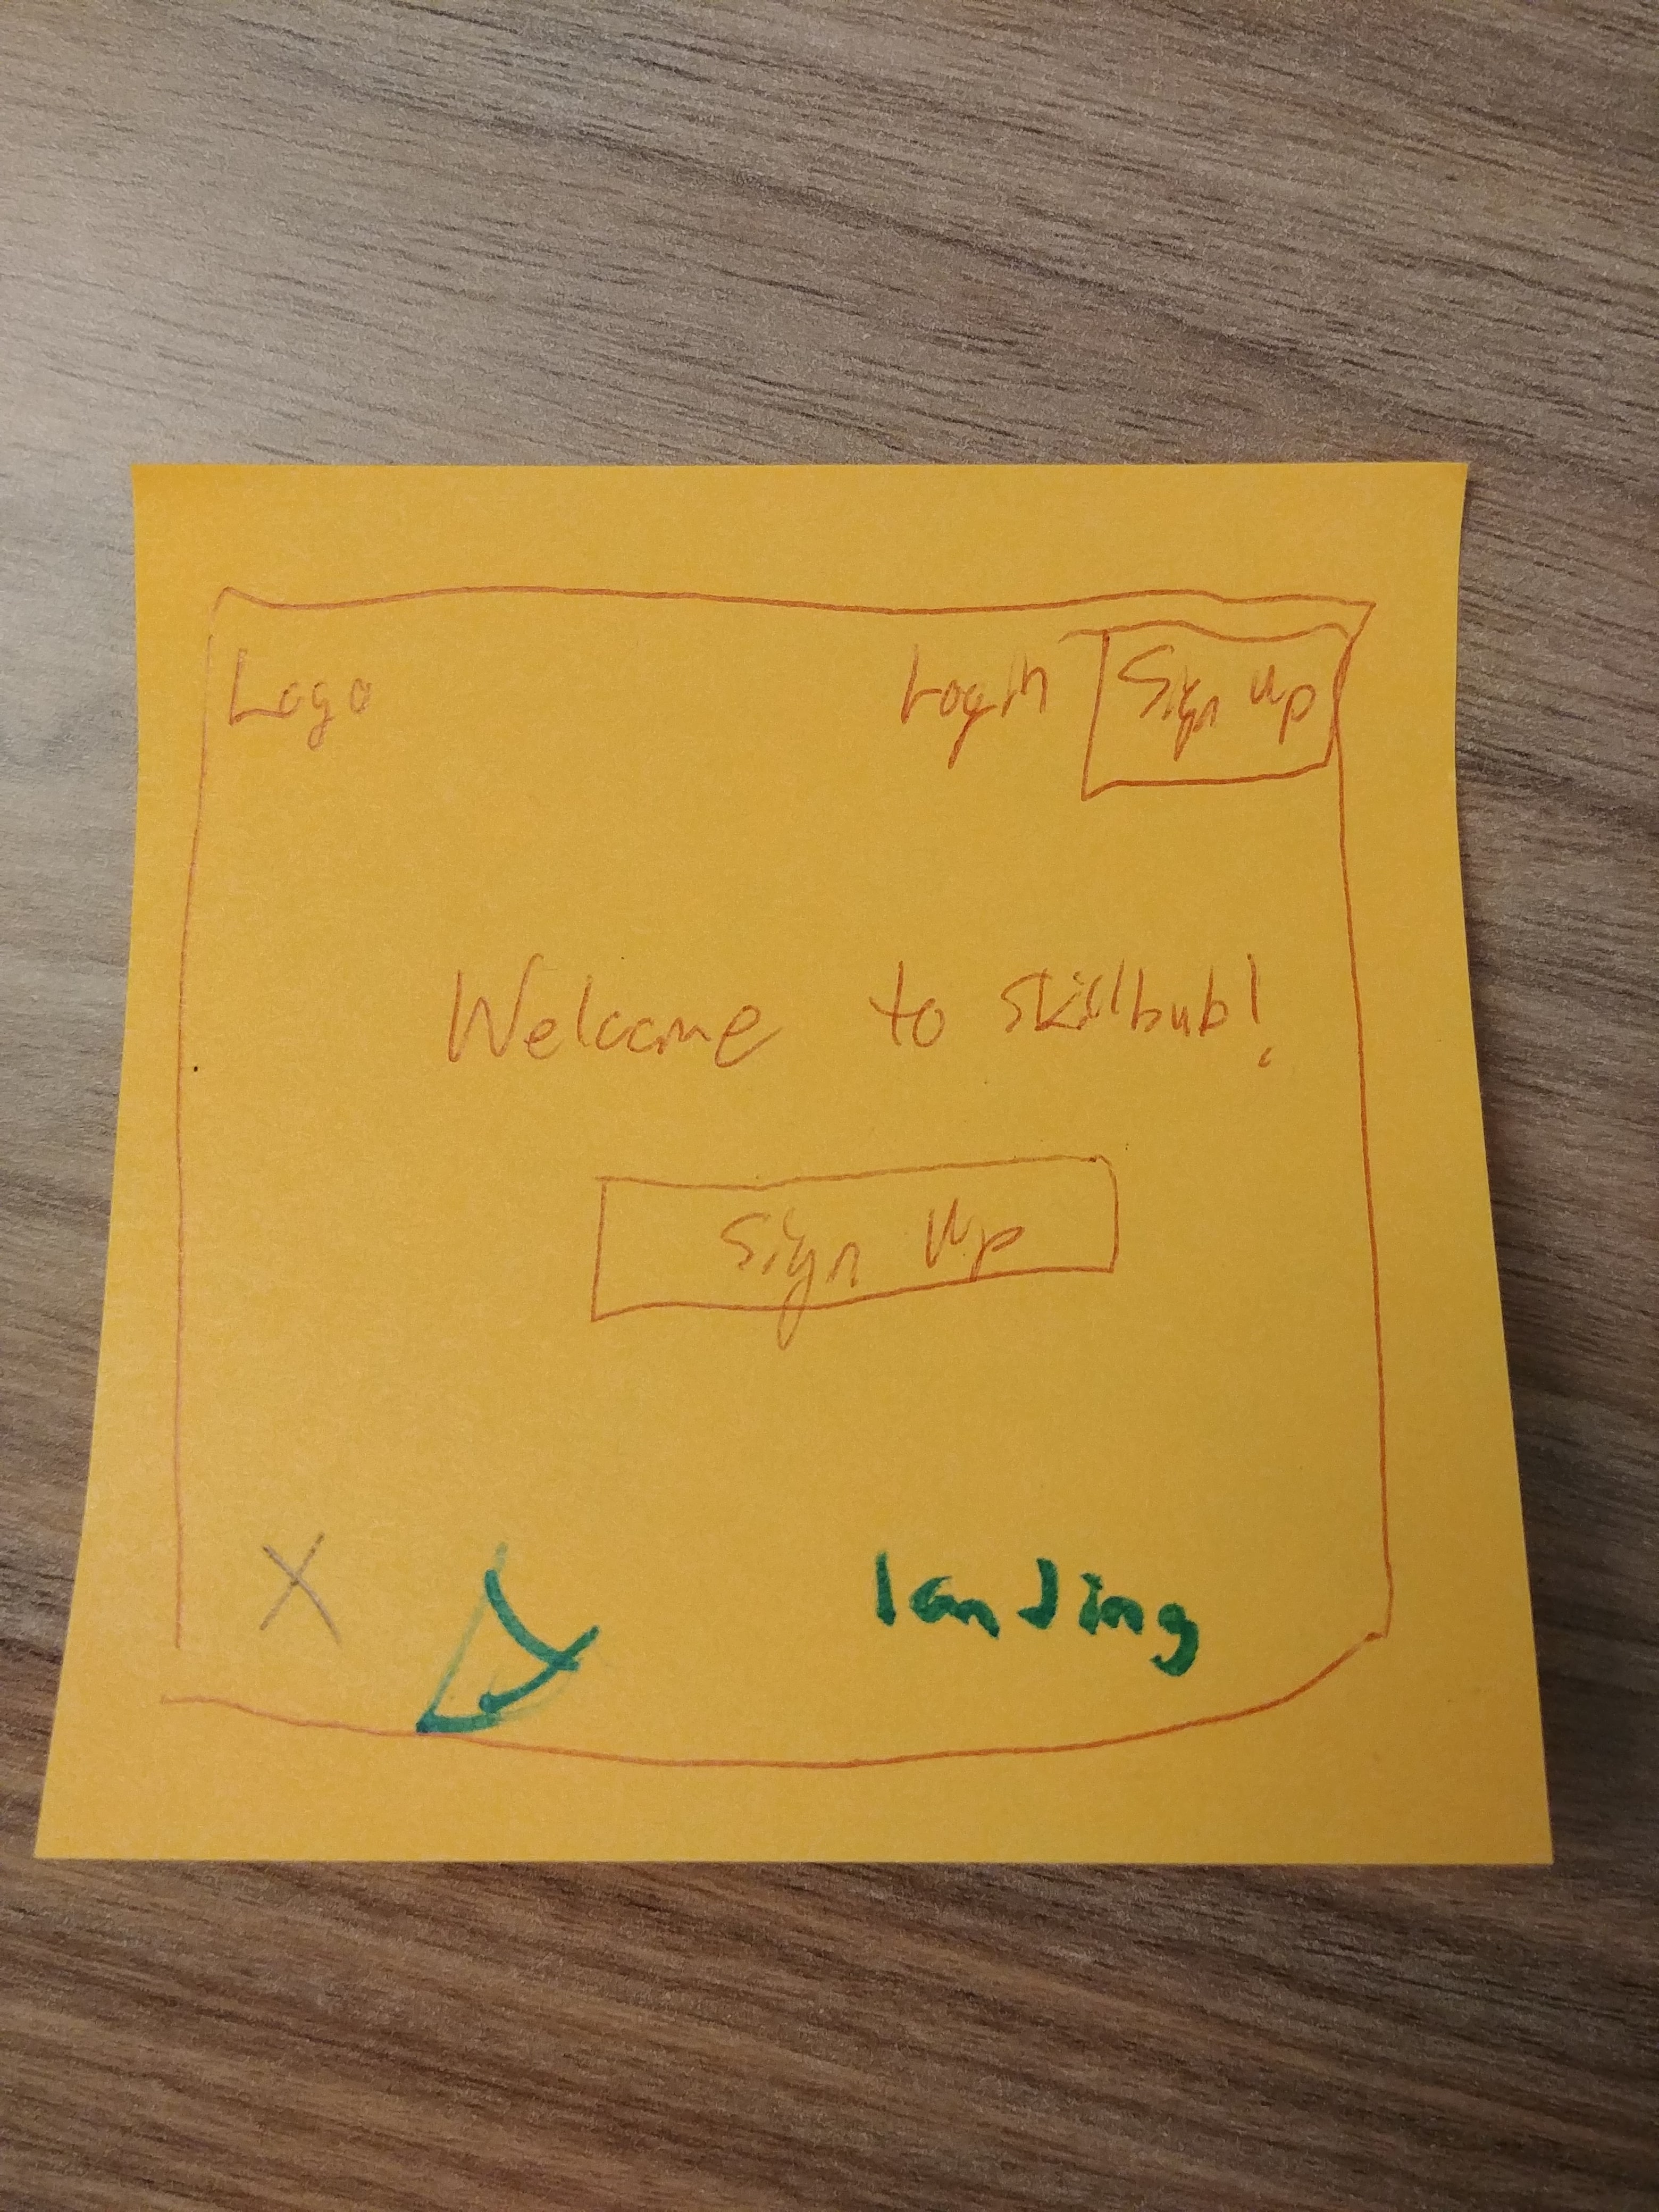 Logo
Login
Sign up
Welcome to Skillbub!
Sign Up
X
landing